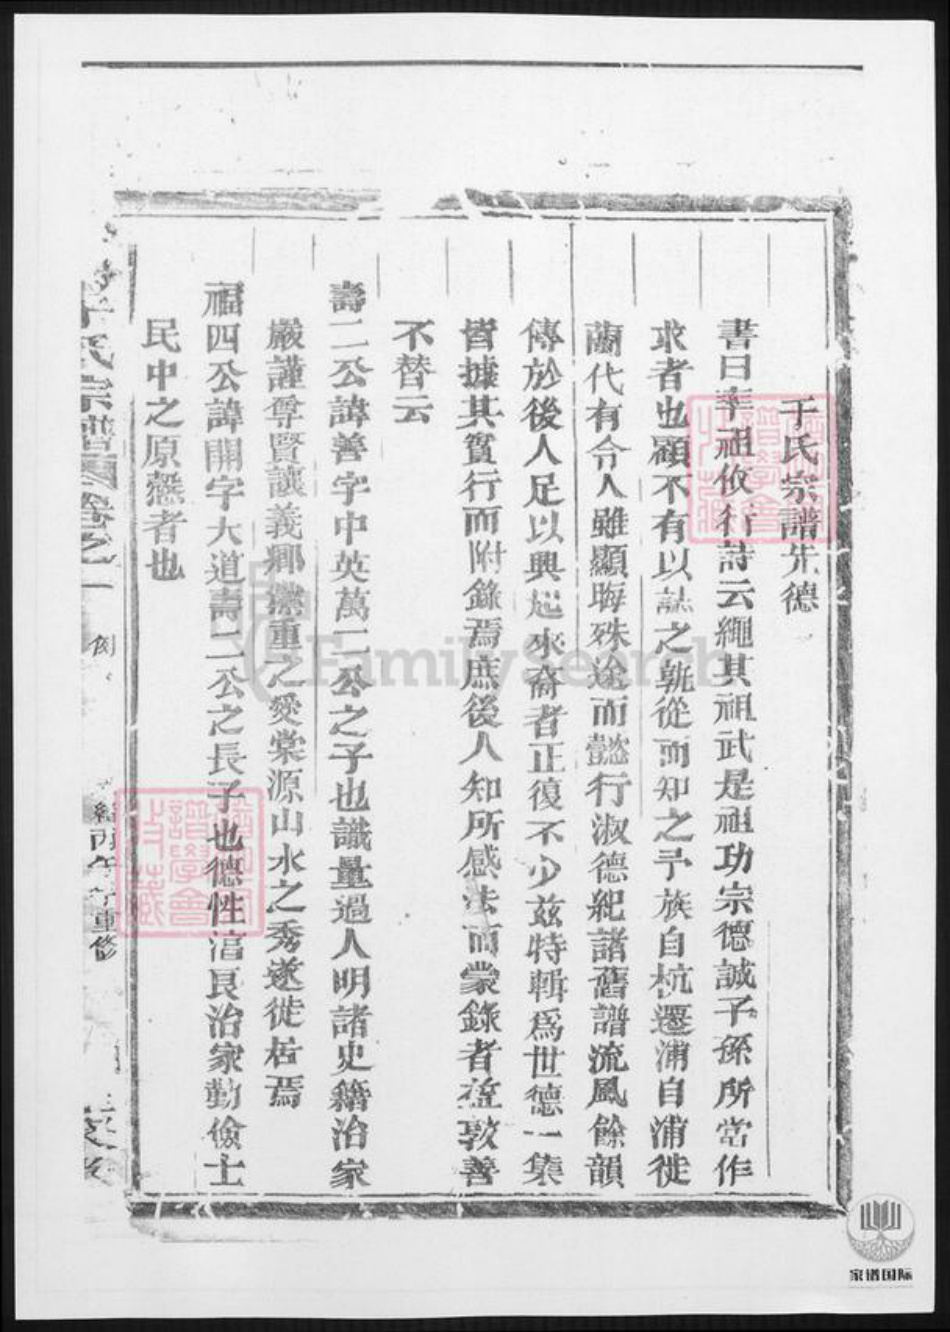 于氏宗譜先德
書曰率祖攸行詩云繩其祖武是祖功宗德誠子孫所當作
求者也顧不有以誌之孰從而知之予族自杭遷浦自浦徙
蘭代有令人雖顯晦殊途而懿行淑德紀諸舊譜流風餘韻
傳於後人足以興起來裔者正復不少茲特輯爲世德一集
皆據其實行而附錄焉庶後人知所感法而蒙錄者益敦善
不替云
壽二公諱善字中英萬二公之子也識量過人明諸史籍治家
嚴謹尊賢讓義鄉黨重之愛棠源山水之秀遂徙居焉
福四公諱開字大道壽二公之長子也德性温良治家勤儉士
民中之原慤者也
于氏宗譜 卷之一
丙午年重修
譜學會
收藏
譜學會
收藏
FamilySearch
家谱国际